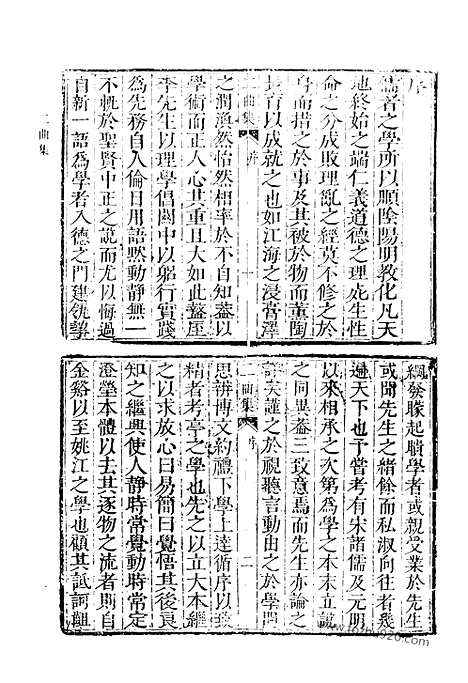 二曲集
序
儒者之學所以順陰陽明教化凡天
地終始之端仁義道德之理死生性
命之分成敗理亂之經莫不修之於
身而措之於事及其被於物而薰陶
長育以成就之也如江海之浸膏澤
二曲集 序 一
之潤渙然怡然相率於不自知蓋以
學術而正人心其重且大如此盩厔
李先生以理學倡關中以躬行實踐
為先務自人倫日用語默動靜無一
不軌於聖賢中正之說而尤以悔過
自新一語為學者入德之門建瓴挈
綱發矇起聵學者或親受業於先生
或聞先生之緒餘而私淑向往者幾
遍天下也予嘗考有宋諸儒及元明
以來相承之次第為學之本末立說
之同異蓋三致意焉而先生亦論之
二曲集 序 二
詳矣謹之於視聽言動由之於學問
思辨博文約禮下學上達循序以致
精者考亭之學也先之以立大本繼
之以求放心曰易簡曰覺悟其後良
知之繼興使人靜時常覺動時常定
澄瑩本體以去其逐物之流者則自
金谿以至姚江之學也顧其詆訶觝